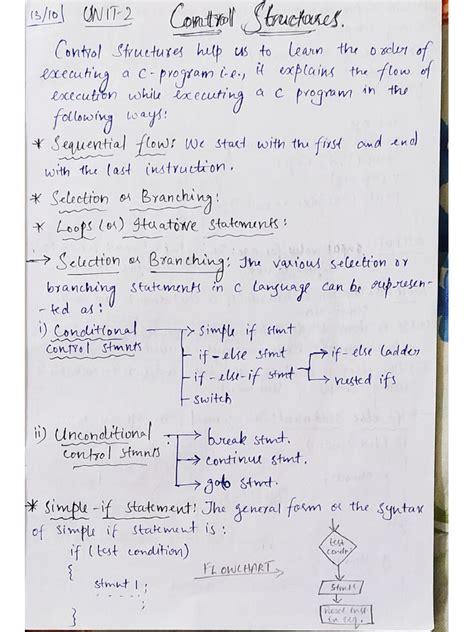 13/10
UNIT-2
Control Structures.
Control Structures help us to learn the order of
executing a c-program i.e., it explains the flow of
execution while executing a c program in the
following ways:
* Sequential flow: We start with the first and end
with the last instruction.
* Selection or Branching:
* Loops (or) Iterative statements:
→ Selection or Branching: The various selection or
branching statements in c language can be represen-
-ted as:
i) Conditional control stmnts
→ simple if stmt
- if-else stmt
- if-else-if stmt
→ if-else ladder
→ nested ifs
- switch
ii) Unconditional control stmnts
→ break stmt.
→ continue stmt.
→ goto stmt.
* Simple-if statement: The general form or the syntax
of simple if statement is:
if (test condition)
{
stmnt 1;
}
FLOWCHART →
test
condn.
Stmts
Next inst
in seq.